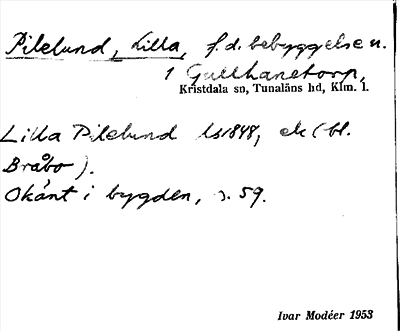 Pilelund, Lilla, f.d. bebyggelse u.
1 Gullhanetorp,
Kristdala sn, Tunaläns hd, Klm. l.
Lilla Pilelund ls1848, ek (bl.
Bråbo).
Okänt i bygden, s. 59.
Ivar Modéer 1953